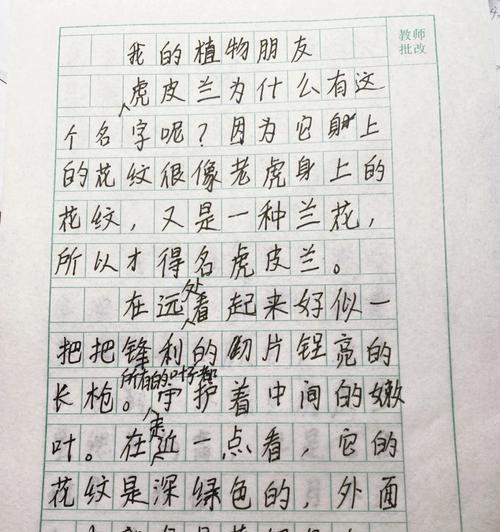 教师
批改
我的植物朋友
虎皮兰为什么有这
个名字呢？因为它身上
的花纹很像老虎身上的
花纹，又是一种兰花，
所以才得名虎皮兰。
处
在远看起来好似一
把把锋利的刀片锃亮的
所有的叶子都
长枪。守护着中间的嫩
走
叶。在近一点看，它的
花纹是深绿色的，外面